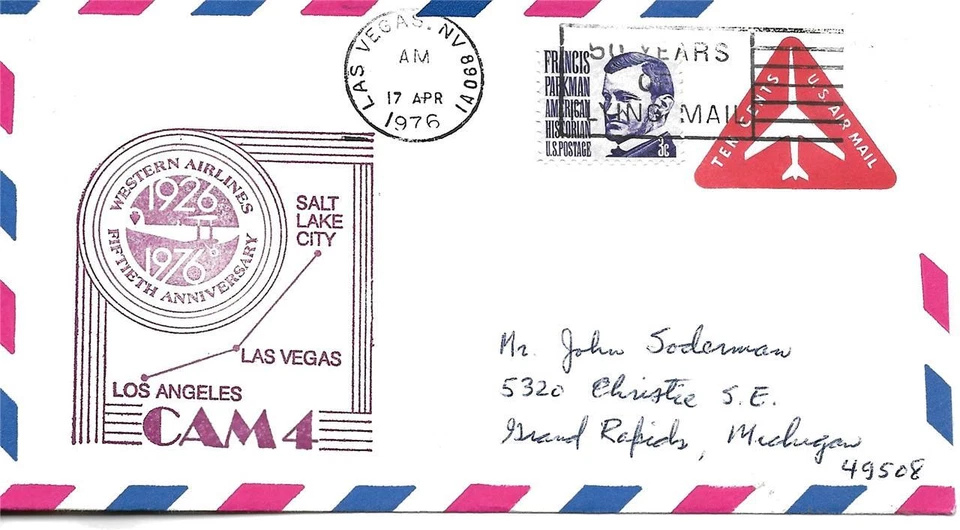 LAS VEGAS. NV 89OA1
AM
17 APR
1976
50 YEARS
LYING MAIL
FRANCIS
PARKMAN
AMERICAN
HISTORIAN
U.S. POSTAGE
3c
TEN CENTS
U.S AIR MAIL
WESTERN AIRLINES
1926
1976
FIFTIETH ANNIVERSARY
SALT
LAKE
CITY
LAS VEGAS
LOS ANGELES
CAM 4
Mr. John Soderman
5320 Christie S.E.
Grand Rapids, Michigan
49508